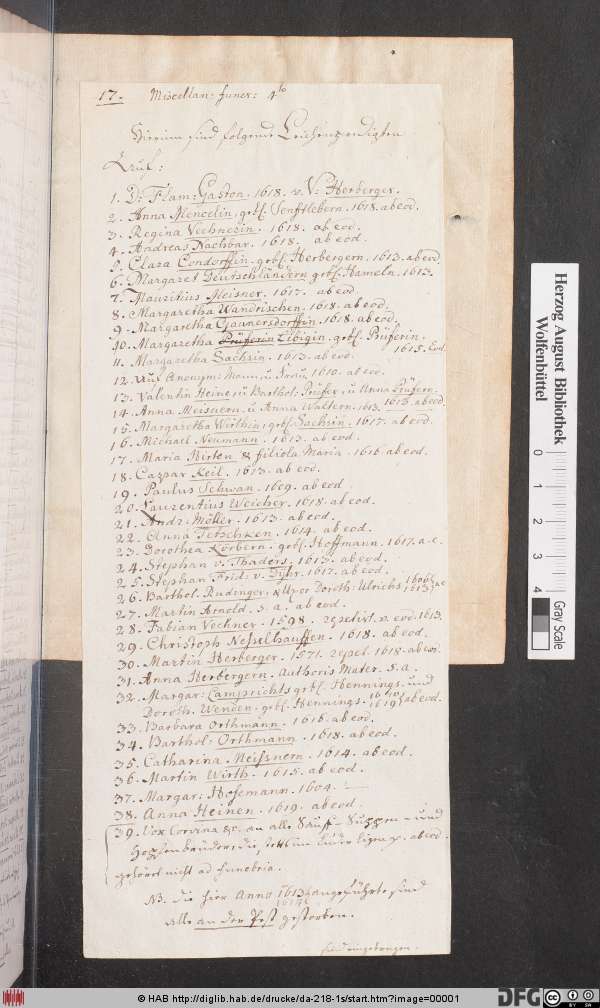 17. Miscellan: funer: 4to
Hierinn sind folgende Leichenpredigten
Auf:
1. D. Flam: Gaston. 1618. v. V. Herberger.
2. Anna Mencelin, gebl. Senftlebern. 1618. ab eod.
3. Regina Vechnerin. 1618. ab eod.
4. Andreas Nachbar. 1618. ab eod.
5. Clara Condorffin, gebl. Herbergern. 1613. ab eod.
6. Margaret Deutschländern gebl. Hameln. 1613.
7. Mauritius Meisner. 1617. ab eod.
8. Margaretha Wandrischen. 1618. ab eod.
9. Margaretha Gaunersdorffin. 1618. ab eod.
10. Margaretha Prüferin Libigin, gebl. Prüferin.
11. Margaretha Sachsin. 1613. ab eod. 1615. Eod.
12. Auf Anonym: Mann, u. Frau 1610. ab eod.
13. Valentin Heine, u. Barthol. Prüfer, u. Anna Prüfern.
14. Anna Meisnern, u. Anna Waltern. 1613. 1613. ab eod.
15. Margaretha Wirthin, gebl. Sachsin. 1617. ab eod.
16. Michael Neumann. 1613. ab eod.
17. Maria Birten & filiola Maria. 1616. ab eod.
18. Caspar Keil. 1613. ab eod.
19. Paulus Schwan. 1609. ab eod
20. Laurentius Weicher. 1618. ab eod.
21. Andr. Möller. 1613. ab eod.
22. Anna Tetschken. 1614. ab eod.
23. Dorothea Körbern. gebl. Hoffmann. 1617. a. e.
24. Stephan v. Thaders. 1613. ab eod.
25. Stephan Frid. v. Dyhr. 1617. ab eod.
26. Barthol. Rudinger, & Uxor Doroth. Ulrichs 1606. 1613. a.e
27. Martin Arnold. s. a. ab eod.
28. Fabian Vechner. 1598. repetirt. v. eod. 1613.
29. Christoph Nesselhauffen. 1618. ab eod.
30. Martin Herberger. 1571. repet. 1618. ab eod.
31. Anna Herbergern. Authoris Mater. s. a.
32. Margar: Lamprichts gebl. Hennings. und
Doroth. Wenden. gebl. Hennings. 1610. 1619. ab eod.
33. Barbara Orthmann. 1616. ab eod.
34. Barthol: Orthmann. 1618. ab eod.
35. Catharina Meissnern. 1614. ab eod.
36. Martin Wirth. 1615. ab eod.
37. Margar: Hosemann. 1604.
38. Anna Heinen. 1619. ab eod.
39. Vox Corvina &c. an alle Sauff- und
ab eod.
gehört nicht ad funebria.
NB. die hier Anno 1613 angeführte sind
alle an der Pest gestorben.
Herzog August Bibliothek
Wolfenbüttel
0 1 2 3 4
Gray Scale
© HAB http://diglib.hab.de/drucke/da-218-1s/start.htm?image=00001
DFG
CC BY SA